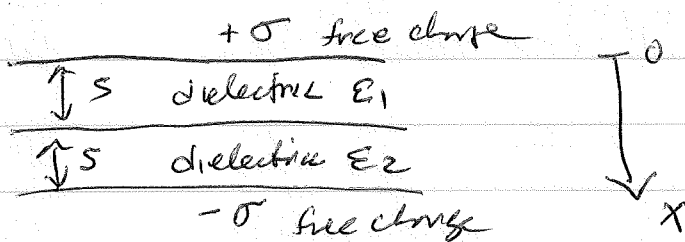 +σ free charge
0
s dielectric ε1
s dielectric ε2
-σ free charge
x